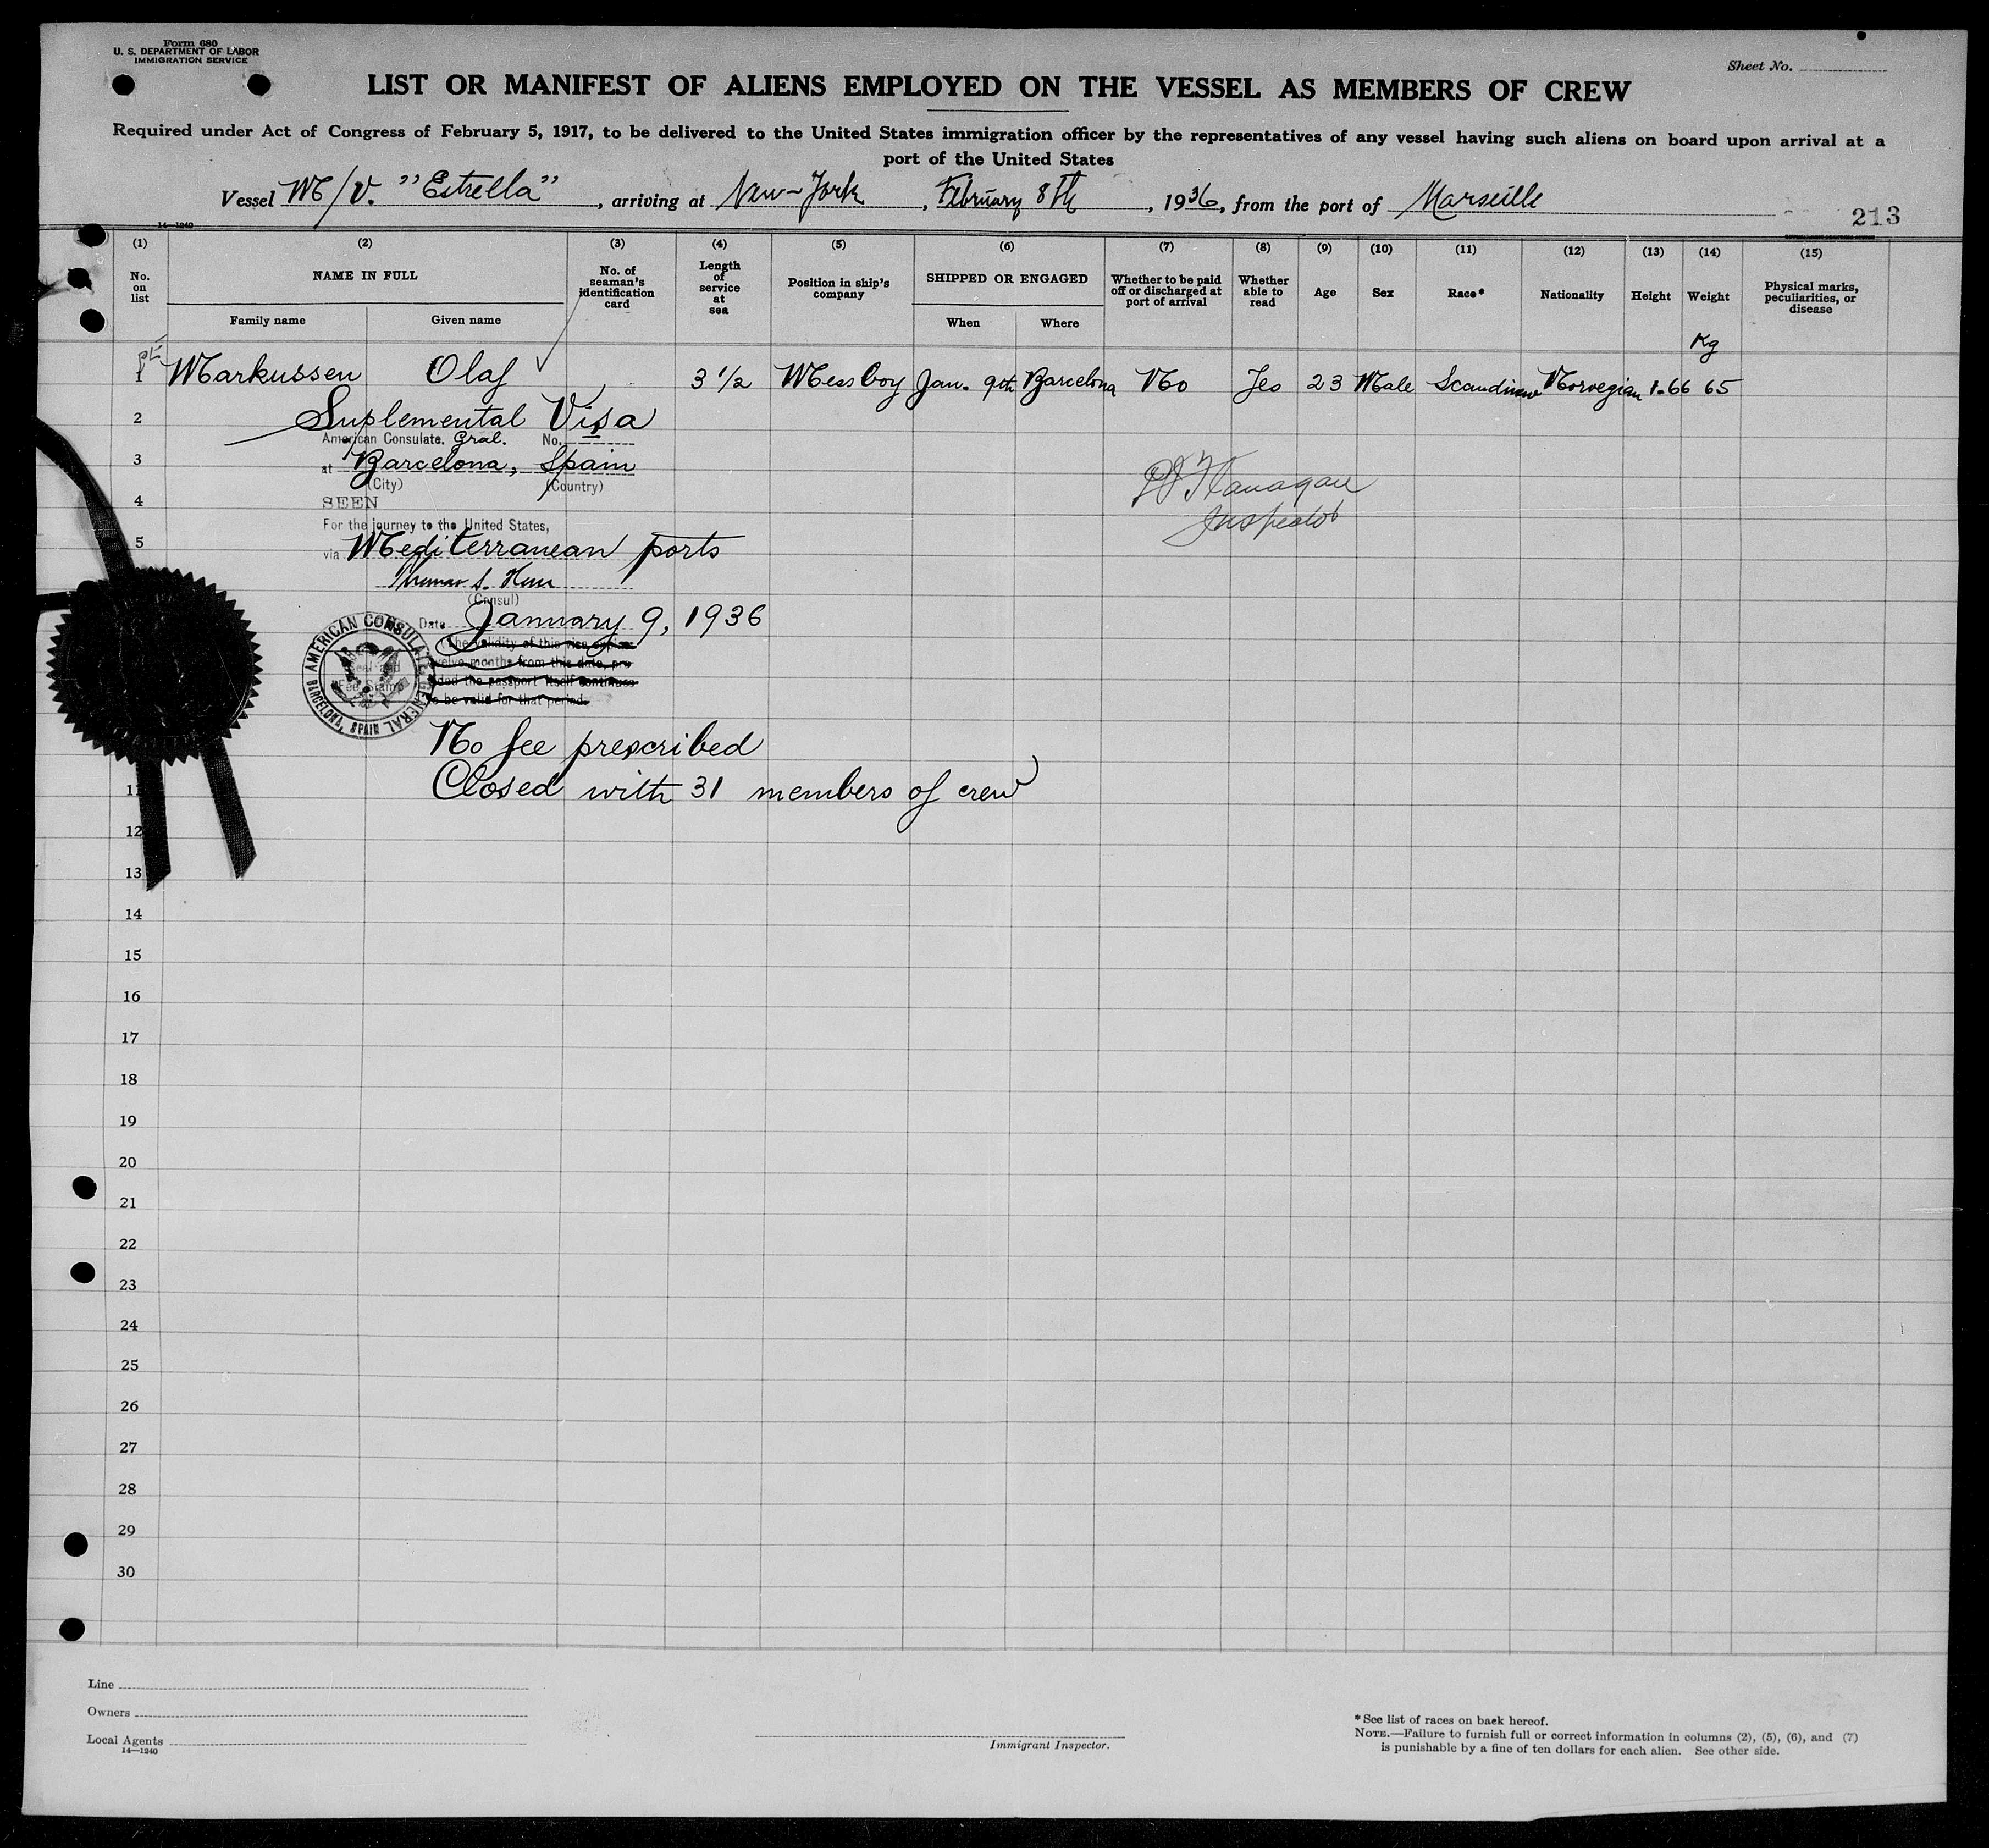 Form 680
U. S. DEPARTMENT OF LABOR
IMMIGRATION SERVICE
Sheet No.
LIST OR MANIFEST OF ALIENS EMPLOYED ON THE VESSEL AS MEMBERS OF CREW
Required under Act of Congress of February 5, 1917, to be delivered to the United States immigration officer by the representatives of any vessel having such aliens on board upon arrival at a
port of the United States
Vessel M/V. "Estrella", arriving at New-York, February 8th, 1936, from the port of Marseille
14—1240
213
(1) (2) (3) (4) (5) (6) (7) (8) (9) (10) (11) (12) (13) (14) (15)
No. on list
NAME IN FULL
Family name
Given name
No. of seaman's identification card
Length of service at sea
Position in ship's company
SHIPPED OR ENGAGED
When
Where
Whether to be paid off or discharged at port of arrival
Whether able to read
Age
Sex
Race*
Nationality
Height
Weight
Physical marks, peculiarities, or disease
Kg
1 Markussen Olaf 3 1/2 Mess boy Jan. 9th Barcelona No Yes 23 Male Norwegian 1.66 65
2 Suplemental Visa
American Consulate. Gral. No.
3 at Barcelona, Spain
(City) (Country)
4 SEEN
For the journey to the United States,
5 via Mediterranean ports
(Consul)
Date January 9, 1936
The validity of this visa expires
twelve months from this date, pro
ided the passport itself continues
to be valid for that period.
AMERICAN CONSULATE GENERAL
BARCELONA, SPAIN
Seal and
Fee Stamp
Flanagan
Inspector
No fee prescribed
Closed with 31 members of crew
11
12
13
14
15
16
17
18
19
20
21
22
23
24
25
26
27
28
29
30
Line
Owners
Local Agents
14—1240
Immigrant Inspector.
*See list of races on back hereof.
NOTE.—Failure to furnish full or correct information in columns (2), (5), (6), and (7)
is punishable by a fine of ten dollars for each alien. See other side.